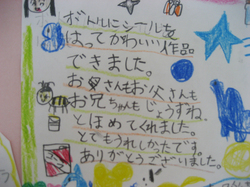 ボトルにシールを
はってかわいい作品。
できました。
お母さんもお父さんも
お兄ちゃんもじょうずね、
とほめてくれました。
とてもうれしかたです。
ありがとうございました。